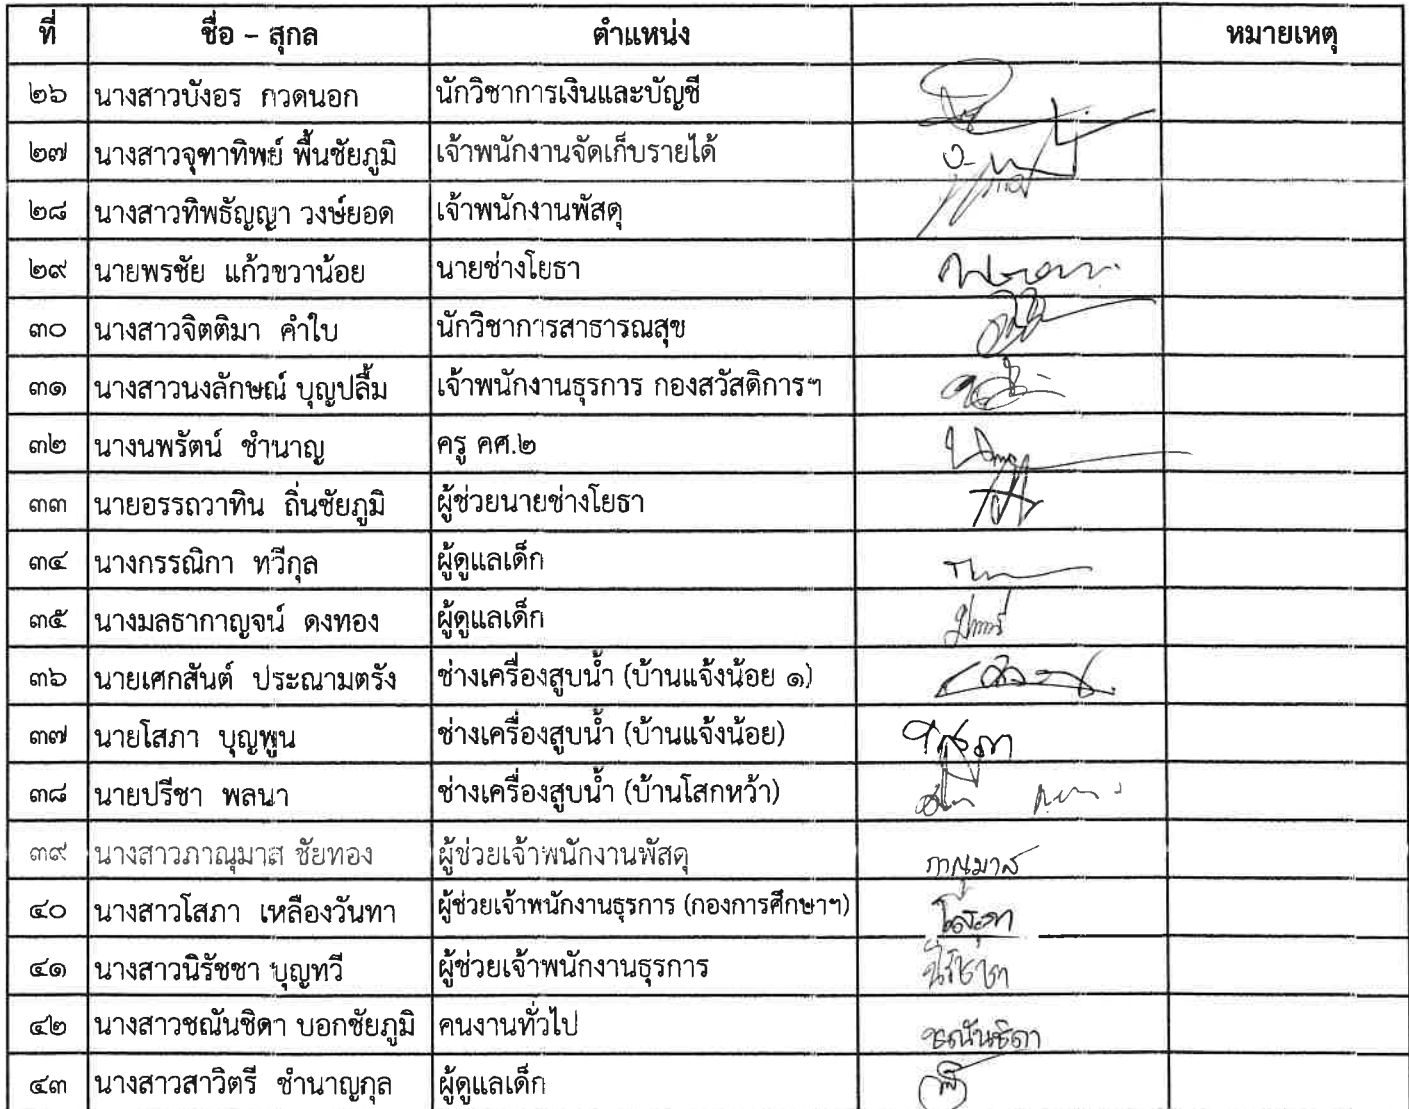 ที่ ชื่อ – สุกล ตำแหน่ง หมายเหตุ
๒๖ นางสาวบังอร กวดนอก นักวิชาการเงินและบัญชี
๒๗ นางสาวจุฑาทิพย์ พื้นชัยภูมิ เจ้าพนักงานจัดเก็บรายได้
๒๘ นางสาวทิพธัญญา วงษ์ยอด เจ้าพนักงานพัสดุ
๒๙ นายพรชัย แก้วขวาน้อย นายช่างโยธา
๓๐ นางสาวจิตติมา คำใบ นักวิชาการสาธารณสุข
๓๑ นางสาวนงลักษณ์ บุญปลื้ม เจ้าพนักงานธุรการ กองสวัสดิการฯ
๓๒ นางนพรัตน์ ชำนาญ ครู คศ.๒
๓๓ นายอรรถวาทิน ถิ่นชัยภูมิ ผู้ช่วยนายช่างโยธา
๓๔ นางกรรณิกา ทวีกุล ผู้ดูแลเด็ก
๓๕ นางมลธากาญจน์ ดงทอง ผู้ดูแลเด็ก
๓๖ นายเศกสันต์ ประณามตรัง ช่างเครื่องสูบน้ำ (บ้านแจ้งน้อย ๑)
๓๗ นายโสภา บุญพูน ช่างเครื่องสูบน้ำ (บ้านแจ้งน้อย)
๓๘ นายปรีชา พลนา ช่างเครื่องสูบน้ำ (บ้านโสกหว้า)
๓๙ นางสาวภาณุมาส ชัยทอง ผู้ช่วยเจ้าพนักงานพัสดุ ภาณุมาส
๔๐ นางสาวโสภา เหลืองวันทา ผู้ช่วยเจ้าพนักงานธุรการ (กองการศึกษาฯ)
๔๑ นางสาวนิรัชชา บุญทวี ผู้ช่วยเจ้าพนักงานธุรการ
๔๒ นางสาวชณันชิดา บอกชัยภูมิ คนงานทั่วไป ชณันชิดา
๔๓ นางสาวสาวิตรี ชำนาญกุล ผู้ดูแลเด็ก